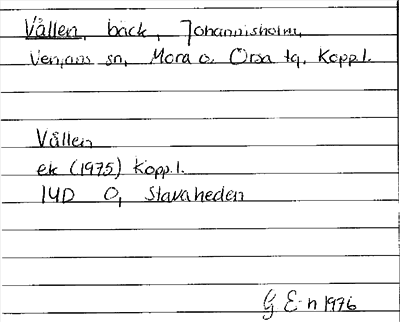 Vållen, bäck, Johannisholm,
Venjans sn, Mora o. Orsa tg, Kopp.l.
Vållen
ek (1975) Kopp.l.
14D O, Stavaheden
G E-n 1976